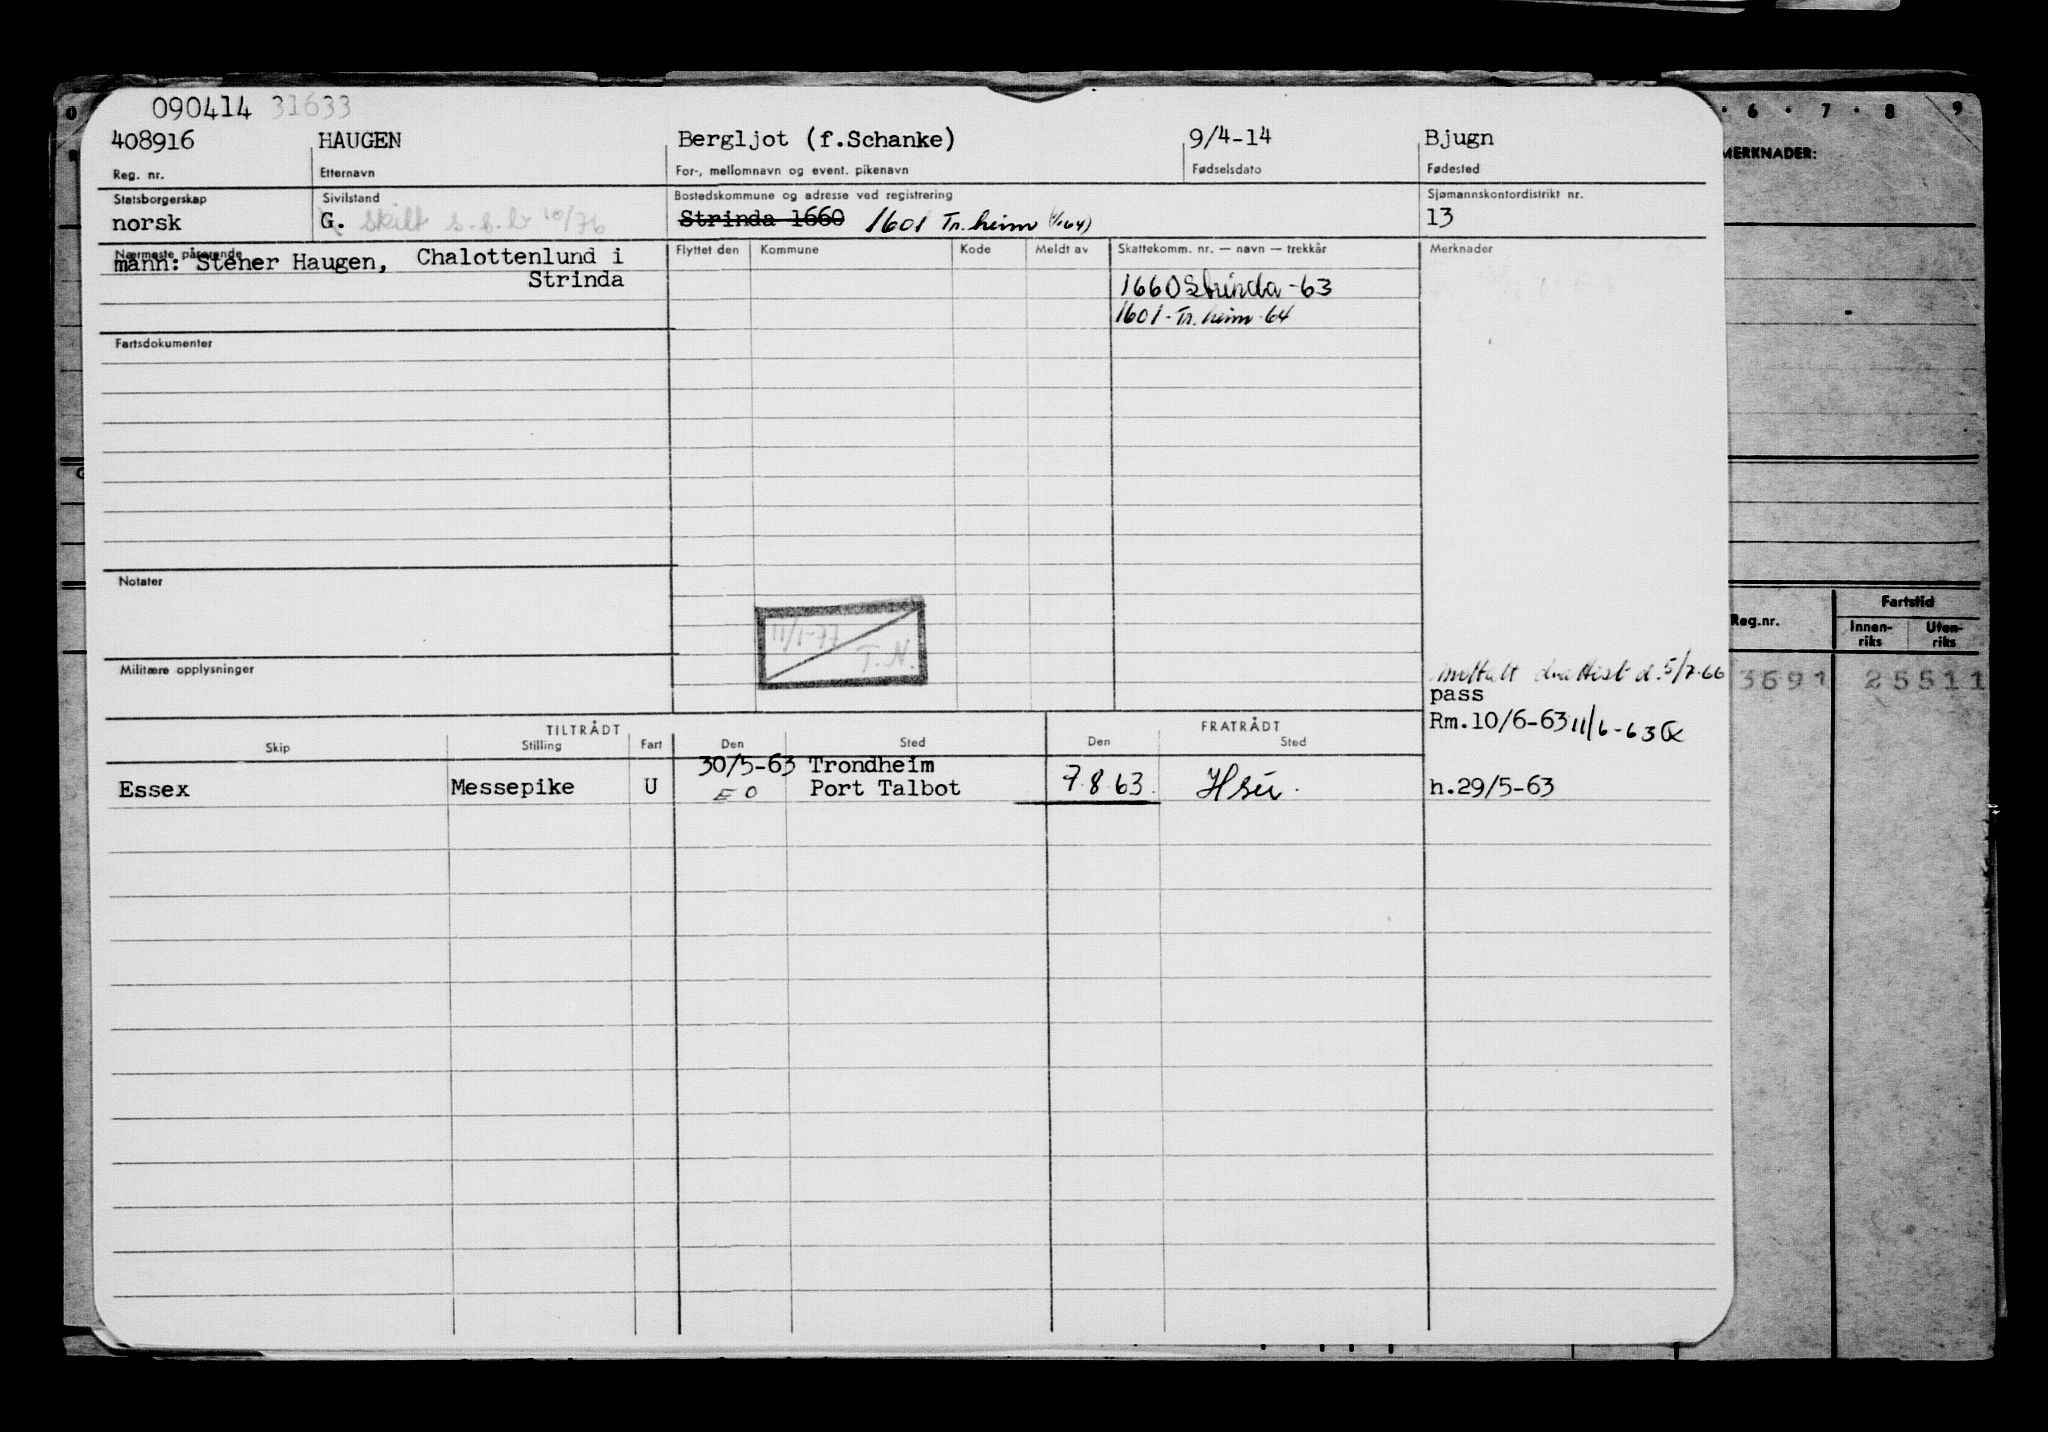 090414 31633
408916 HAUGEN Bergljot (f.Schanke) 9/4-14 Bjugn
Reg. nr. Etternavn For-, mellomnavn og event. pikenavn Fødselsdato Fødested
Statsborgerskap Sivilstand Bostedskommune og adresse ved registrering Sjømannskontordistrikt nr.
norsk G. skilt 10/76 Strinda 1660 1601 Tr.heim 13
Nærmeste pårørende Flyttet den Kommune Kode Meldt av Skattekomm. nr. — navn — trekkår Merknader
mann: Stener Haugen, Chalottenlund i
Strinda
1660 Strinda-63
1601-Tr.heim-64
Fartsdokumenter
Notater
11/1-77
T.N.
Militære opplysninger
d. 5/7-66
pass
Rm.10/6-63 11/6-63
TILTRÅDT FRATRÅDT
Skip Stilling Fart Den Sted Den Sted
30/5-63 Trondheim
Essex Messepike U E O Port Talbot 7.8.63. h.29/5-63
0 6 7 8 9
MERKNADER:
Reg.nr. Fartstid
Innen-riks Uten-riks
3691 25511